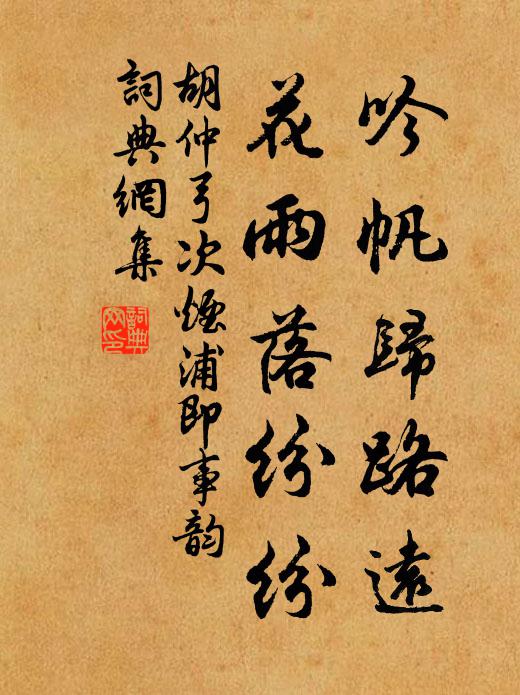 吟帆歸路遠
花雨落紛紛
胡仲弓次煙浦即事韵
詞典網集
詞典網印